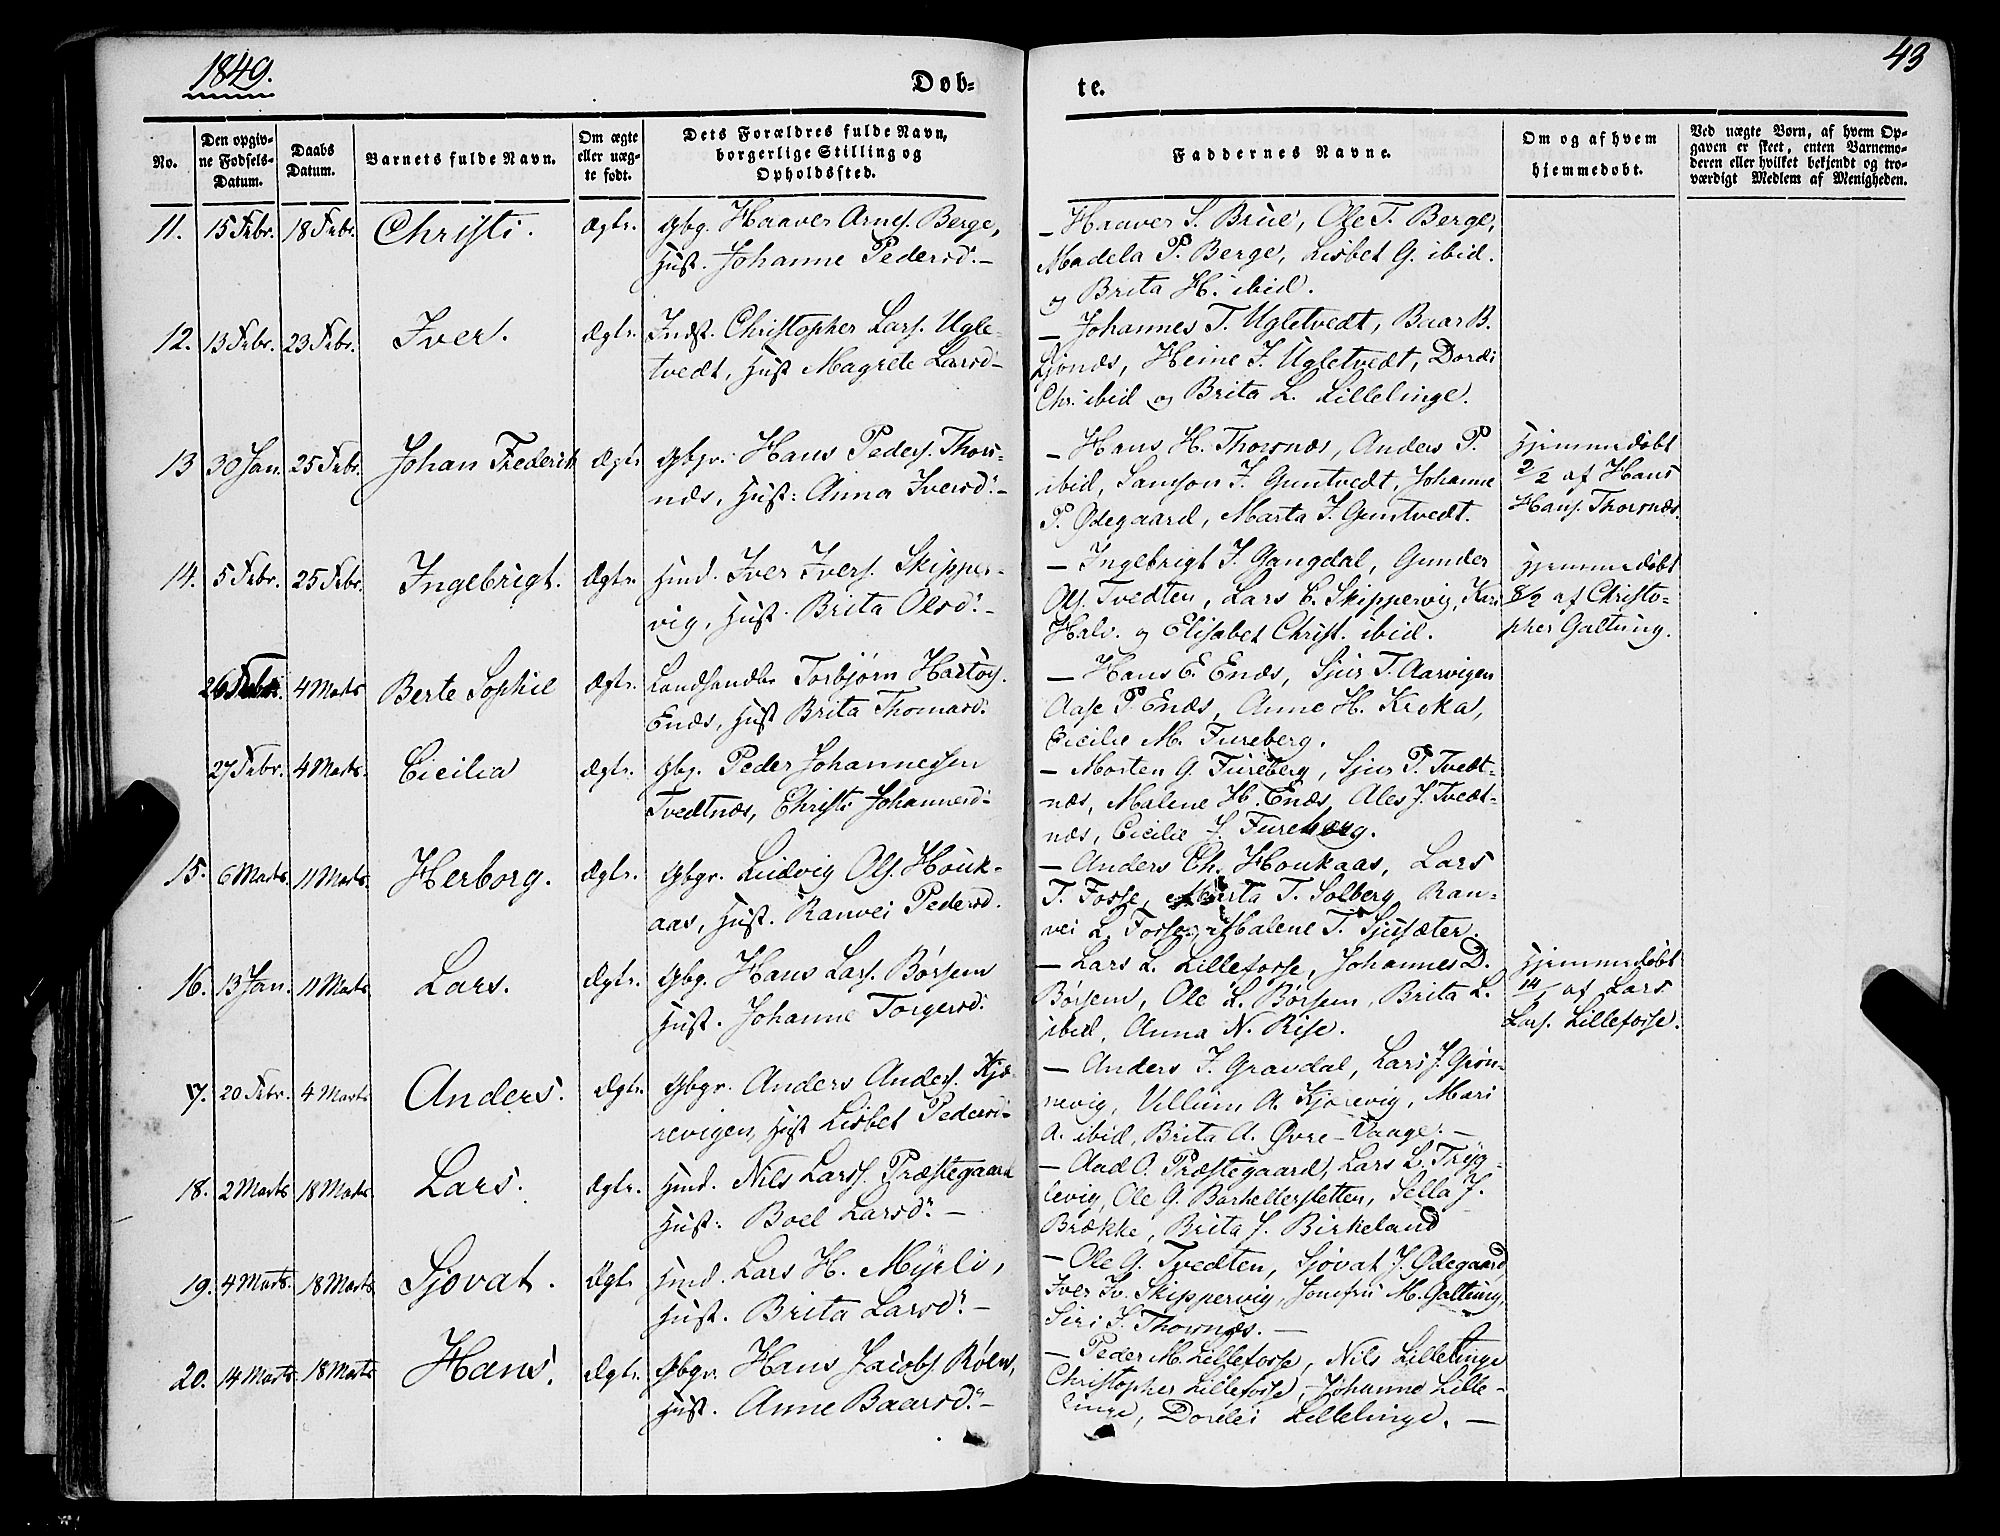 1849.
Døb-
te.
43
No.
Den opgiv-
ne Fødsels-
Datum.
Daabs
Datum.
Barnets fulde Navn.
Om ægte
eller uæg-
te født.
Dets Forældres fulde Navn,
borgerlige Stilling og
Opholdssted.
Faddernes Navne.
Om og af hvem
hjemmedøbt.
Ved uægte Børn, af hvem Op-
gaven er skeet, enten Barnemo-
deren eller hvilket bekjendt og tro-
værdigt Medlem af Menigheden.
11. 15 Febr. 18 Febr. Christi. Ægte. Gbg. Haaver Arnes. Berge,
Hust. Johanne Pedersd. –
– Haaver S. Brue, Ole T. Berge,
Madela P. Berge, Lisbet G. ibid.
og Brita H. ibid.
12. 13 Febr. 23 Febr. Iver. Ægte. Indst. Christopher Lars. Ugle-
tvedt, Hust Magrete Larsd –
– Johannes T. Ugletvedt, Baar B.
Ljonæs, Heine J. Ugletvedt, Dordi
Chr. ibid og Brita L. Lillelinge.
13 30 Jan. 25 Febr. Johan Frederik Ægte Gbgr. Hans Peders. Thors-
næs, Hust: Anna Iversd. –
– Hans H. Thorsnæs, Anders P.
ibid, Samson J. Guntvedt, Johanne
P. Ødegaard, Marta J. Guntvedt.
Hjemmedøbt
2/2 af Hans
Hans. Thorsnæs.
14. 5 Febr. 25 Febr. Ingebrigt. Ægte. Hmd. Iver Ivers. Skipper-
vig, Hust. Brita Olsd. –
– Ingebrigt J. Gangdal, Gunder
Ols. Tvedten, Lars C. Skippervig, Kari
Halv. og Elisabet Christ. ibid.
Hjemmedøbt
8/2 af Christo-
pher Galtung.
26 Febr. 4 Marts Berte Sophie Ægte. Landhandler Torbjørn Hartvigs.
Enæs, Hust Brita Thomasd.
– Hans E. Enæs, Sjur T. Aarvigen
Aase P. Enæs, Anne H. Kroka,
Cicilie M. Fureberg.
27 Febr. 4 Marts. Cicilia Ægte. Gbg. Peder Johannesen
Tvedtnæs, Christi Johannesd. –
– Morten G. Fureberg, Sjur P. Tvedt-
næs, Malene H. Enæs, Ales J. Tvedt-
næs, Cicilie J. Fureberg.
15. 6 Marts 11 Marts. Herborg. Ægte. Gbgr. Ludvig Ols. Houk-
aas, Hust. Ranvei Pedersd.
– Anders Ch. Houkaas, Lars
T. Fosse, Marta T. Solberg, Ran-
vei L. Fosse, Malene T. Sjusæter.
16. 13 Jan. 11 Marts Lars. Ægte. Gbg. Hans Lars. Børsem
Hust. Johanne Torgersd.
– Lars L. Lillefosse, Johannes D.
Børsem, Ole L. Børsem, Brita L.
ibid, Anna N. Rise.
Hjemmedøbt
14/1 af Lars
Lars. Lillefosse.
17. 20 Febr. 4 Marts Anders. Ægte. Gbgr. Anders Anders. Kjæ-
revigen, Hust Lisbet Pedersd –
– Anders J. Gravdal, Lars J. Grøn-
nevig, Villum A. Kjærevig, Mari
A. ibid, Brita A. Øvre-Vaage. –
18. 2 Marts 18 Marts. Lars. Ægte. Hmd. Nils Larss. Præstegaard
Hust: Boel Larsd. –
– Aad O. Præstegaard, Lars L. Tryg-
levig, Ole G. Barhellersletten, Sella J.
Brække, Brita J. Birkeland
19. 4 Marts. 18 Marts Sjovat. Ægte Hmd. Lars H. Myrli,
Hust. Brita Larsd. –
– Ole G. Tvedten, Sjøvat J. Ødegaard,
Iver Iv. Skippervig, Jomfru M. Galtung,
Siri J. Thorsnæs. –
20. 14 Marts 18 Marts Hans. Ægte. Gbgr. Hans Jacobs. Røen,
Hust. Anne Baarsd. –
– Peder M. Lillefosse, Nils Lillelinge
Christopher Lillefosse, Johanne Lille-
linge, Dordei Lillelinge. –